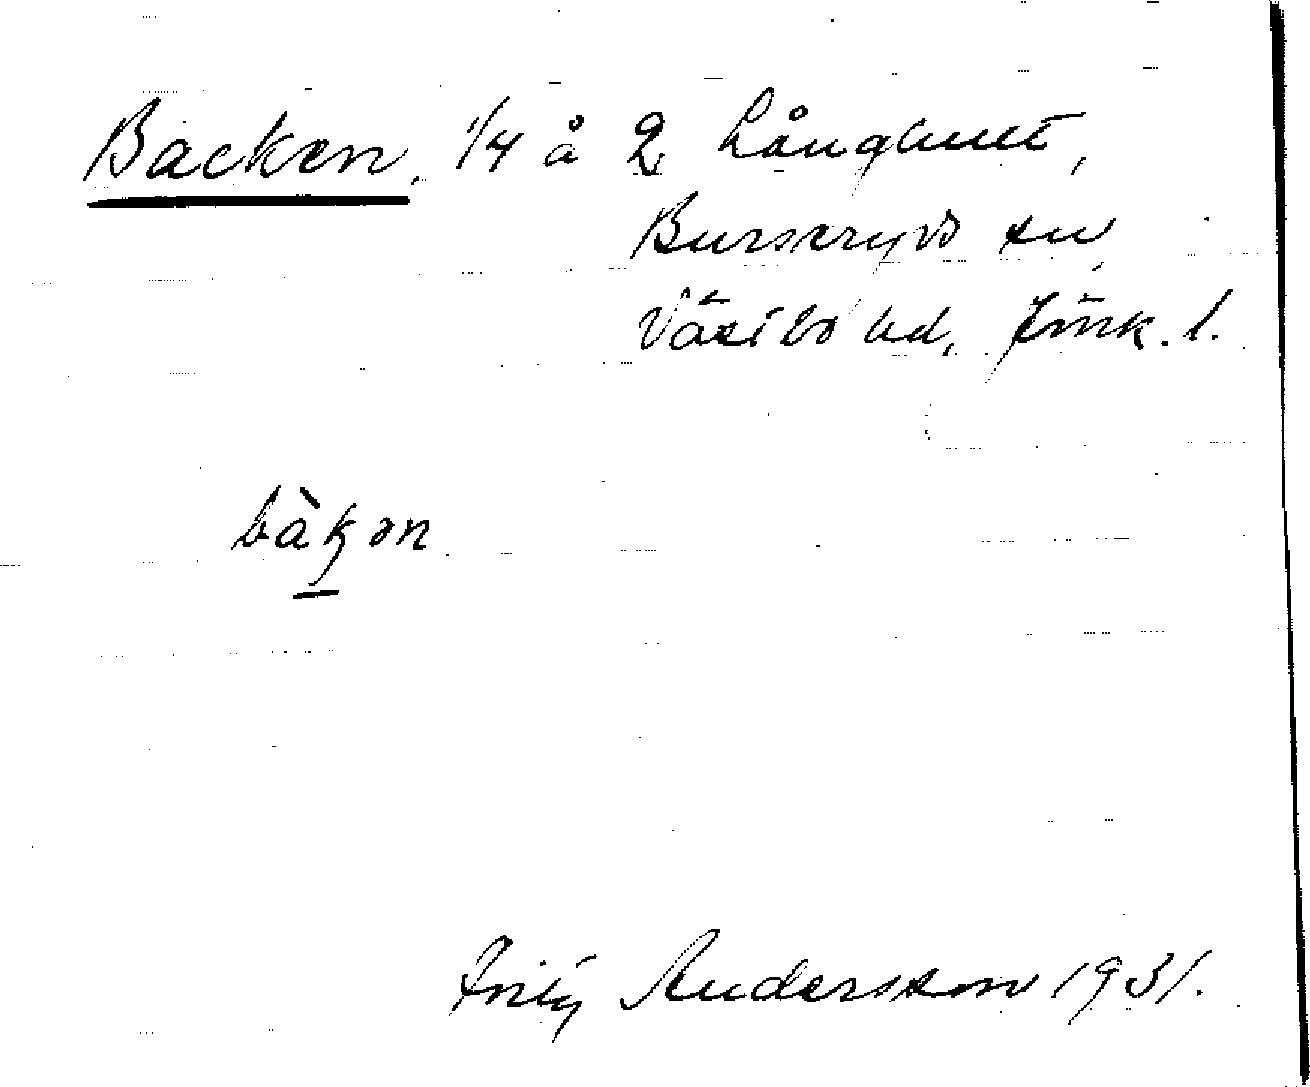 Backen, 1/4 å 2 Långhult,
Burseryds sn
Västbo hd, Jönk. l.
bàkən
Fritz Andersson 1931.